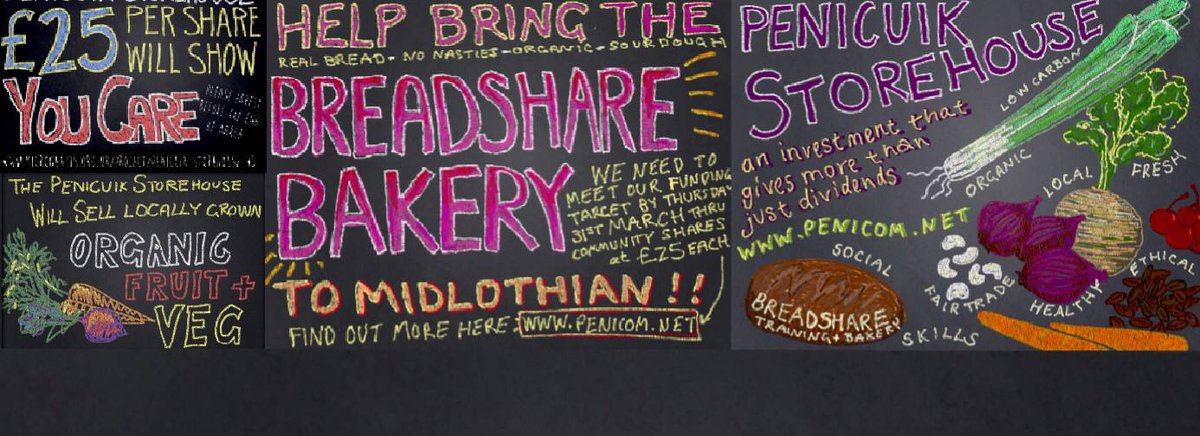 PENICUIK STOREHOUSE
£25 PER SHARE
WILL SHOW
YOU CARE
THE PENICUIK STOREHOUSE
WILL SELL LOCALLY GROWN
ORGANIC
FRUIT +
VEG
HELP BRING THE
REAL BREAD - NO NASTIES - ORGANIC - SOURDOUGH
BREADSHARE
BAKERY
WE NEED TO
MEET OUR FUNDING
TARGET BY THURSDAY
31ST MARCH THRU
COMMUNITY SHARES
at £25 EACH
TO MIDLOTHIAN !!
FIND OUT MORE HERE: WWW.PENICOM.NET
PENICUIK
STOREHOUSE
an investment that
gives more than
just dividends
WWW.PENICOM.NET
LOW CARBON
ORGANIC
LOCAL
FRESH
SOCIAL
FAIRTRADE
HEALTHY
ETHICAL
BREADSHARE
TRAINING + BAKERY
SKILLS